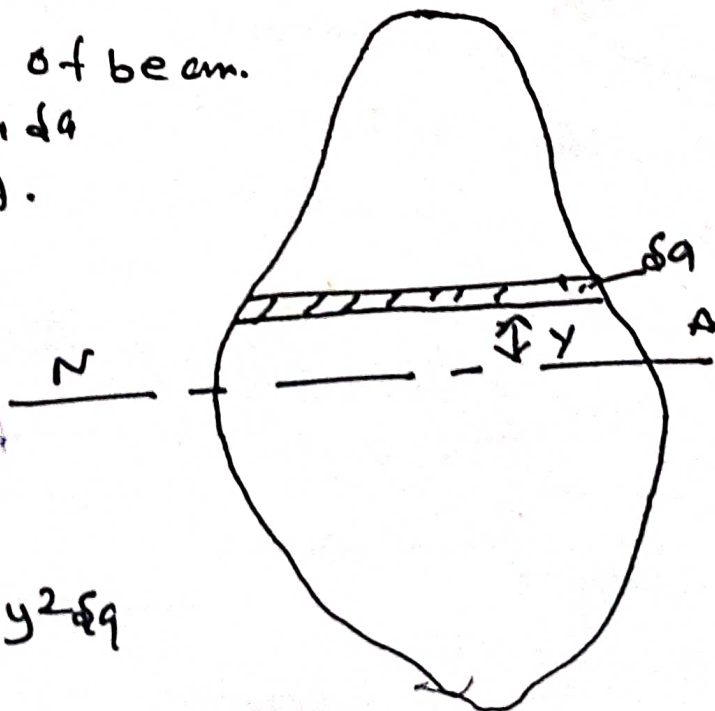 of beam.
δa
δa
N
Y
A
y²δa